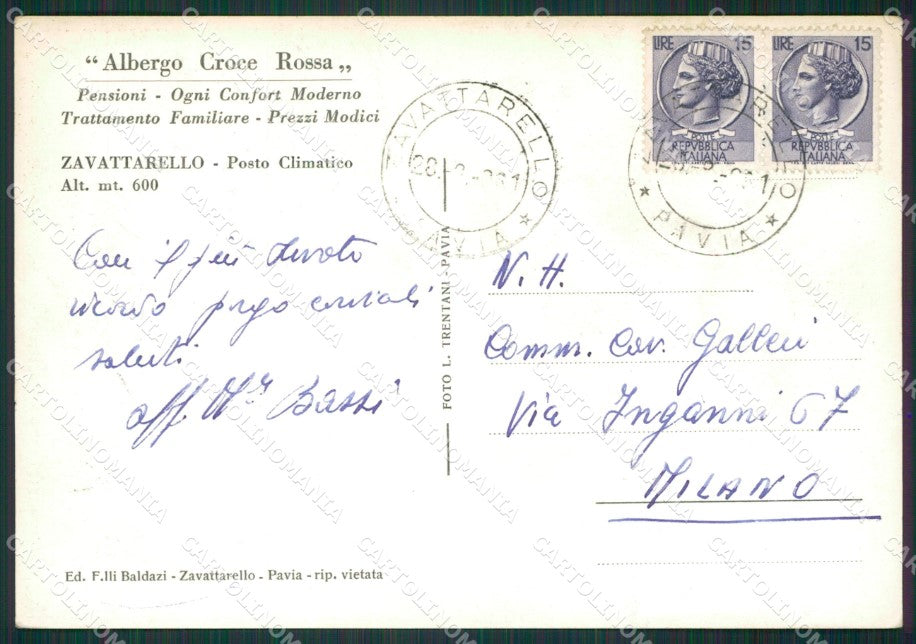 “Albergo Croce Rossa„
Pensioni - Ogni Confort Moderno
Trattamento Familiare - Prezzi Modici
ZAVATTARELLO - Posto Climatico
Alt. mt. 600
ZAVATTARELLO
PAVIA
LIRE 15
POSTE
REPVBBLICA
ITALIANA
LIRE 15
POSTE
REPVBBLICA
ITALIANA
PAVIA
Con il più devoto
ricordo porgo cordiali
saluti
aff. Bassi
FOTO L. TRENTANI - PAVIA
N. H.
Comm. Cav. Galleni
Via Inganni 67
MILANO
Ed. F.lli Baldazi - Zavattarello - Pavia - rip. vietata
CARTOLINOMANIA